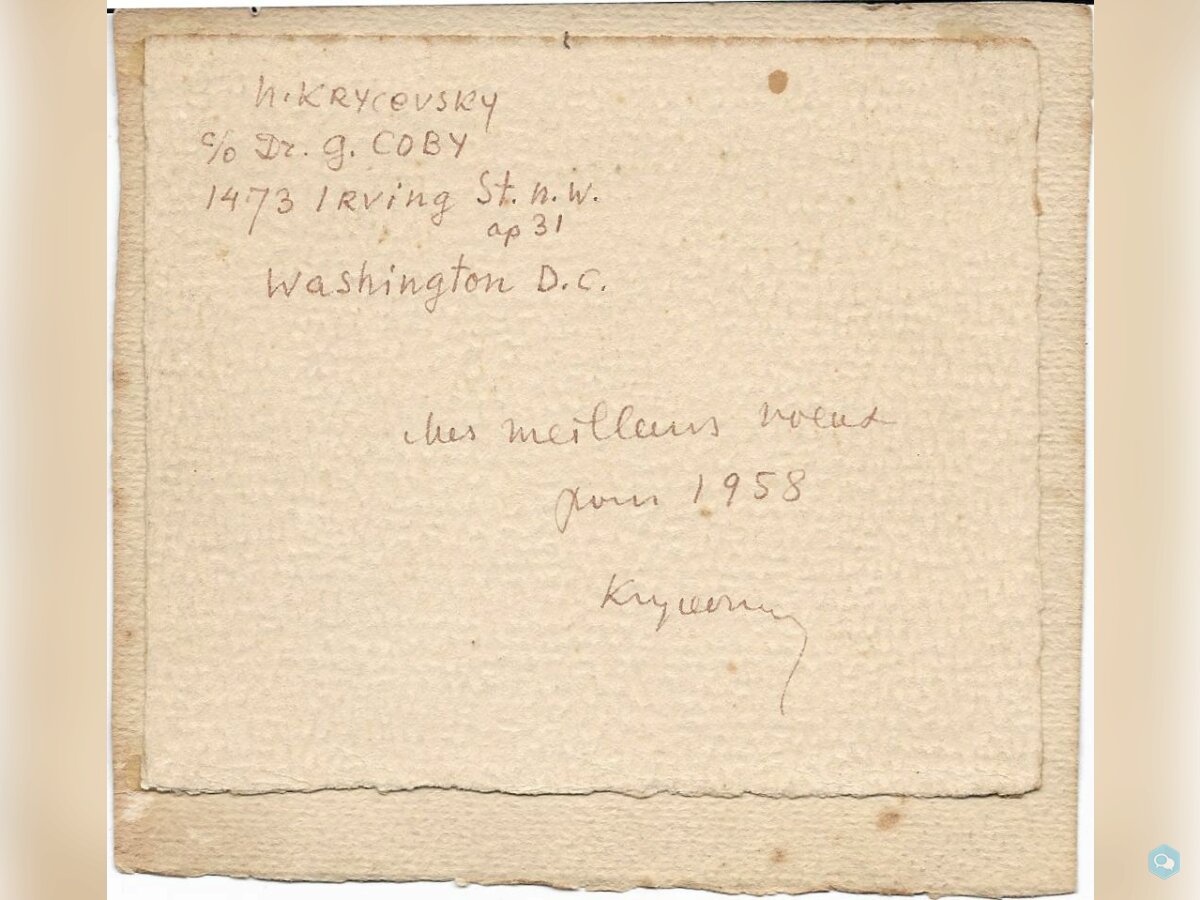 N. KRYCEVSKY
c/o Dr. G. COBY
1473 IRving St. N.W.
ap 31
Washington D.C.
Mes meilleurs voeux
pour 1958
Krycevsky